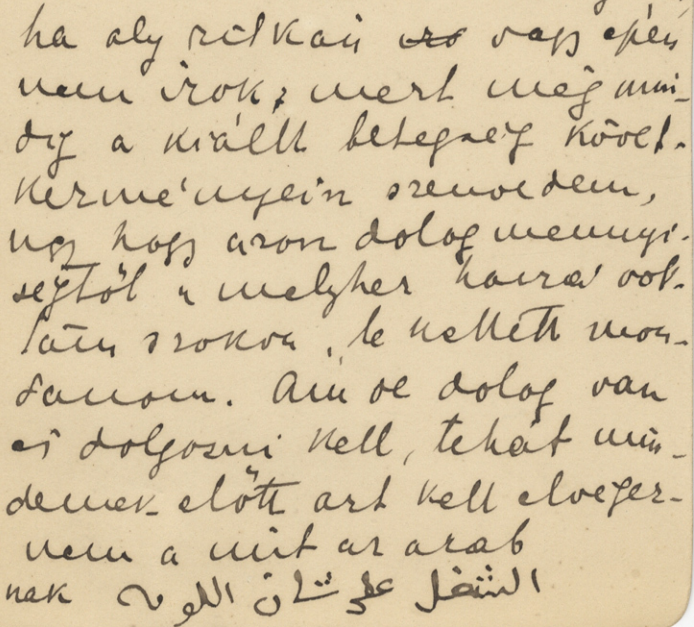 ha oly ritkán vagy épen
nem irok, mert még min-
dig a kiállt betegség követ-
kezményein szenvedem,
ugy hogy azon dolog mennyi-
ségtől a melyhez hozzá vol-
tam szokva, le kellett mon-
danom. Ám de dolog van
és dolgozni kell, tehát min-
denek előtt azt kell elvégez-
nem a mit az arab
nak الشغل على شان